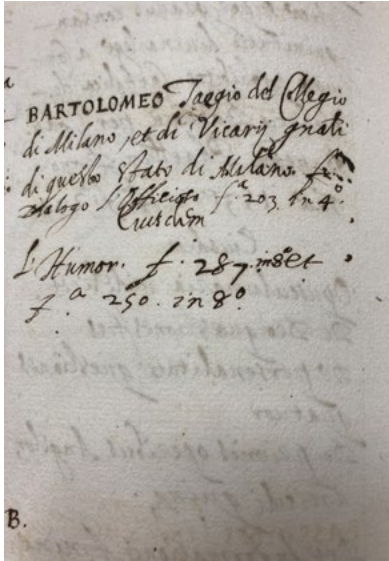 BARTOLOMEO Taegio del Collegio
di Milano, et di Vicarij gnāli
di questo Stato di Milano.
Dialogo L'Officioso fᵃ 203. in 4º.
Eiusdem
L'Humor. f. 287. in 8º et
fᵃ 250. in 8º
B.